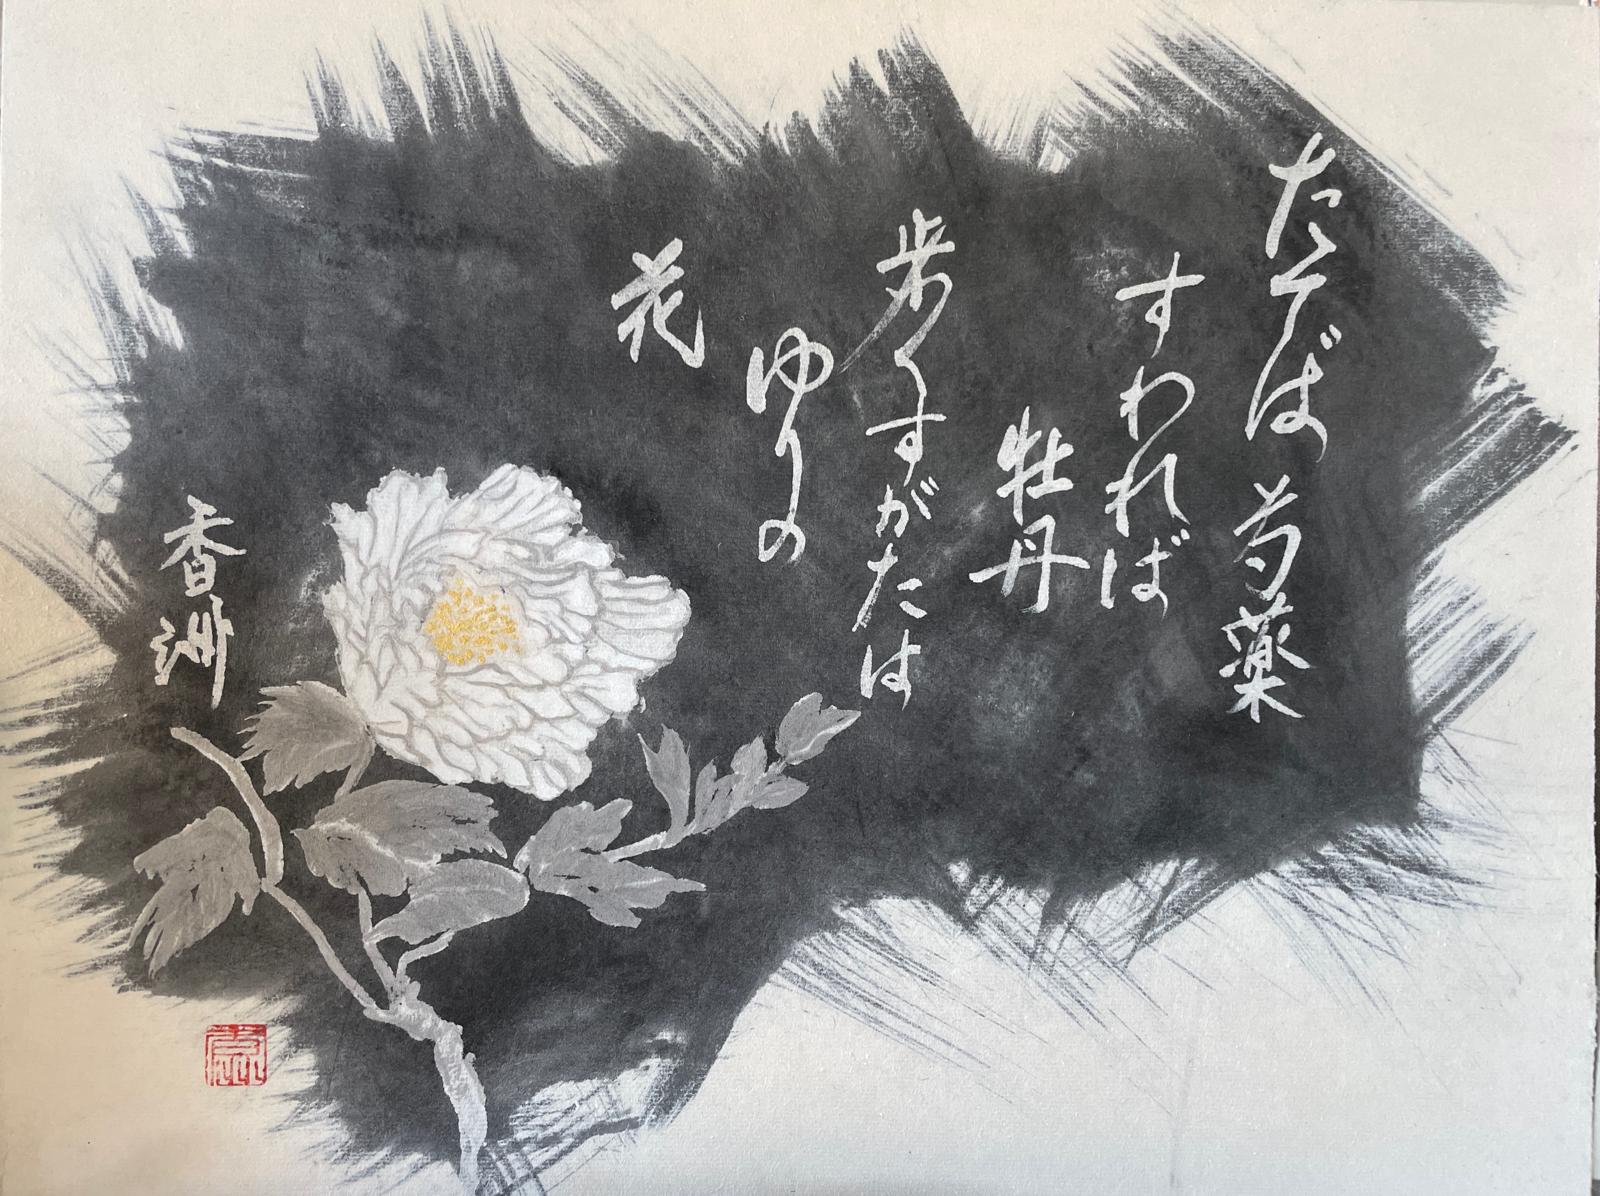 たてば芍薬
すわれば
牡丹
歩くすがたは
ゆりの
花
香洲